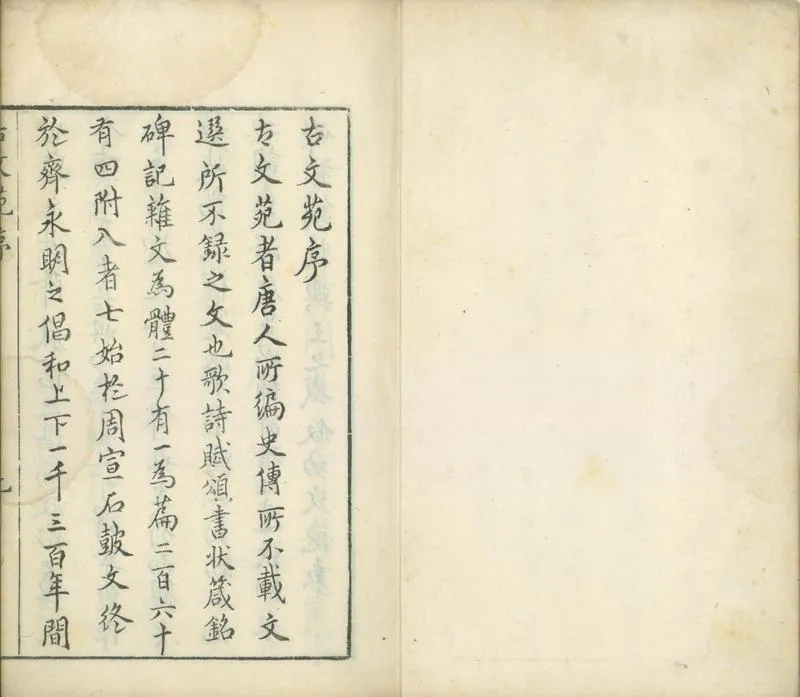 古文苑序
古文苑者唐人所編史傳所不載文
選所不錄之文也歌詩賦頌書狀箴銘
碑記雜文為體二十有一為篇二百六十
有四附入者七始於周宣石鼓文終
於齊永明之倡和上下一千三百年間
古文苑序